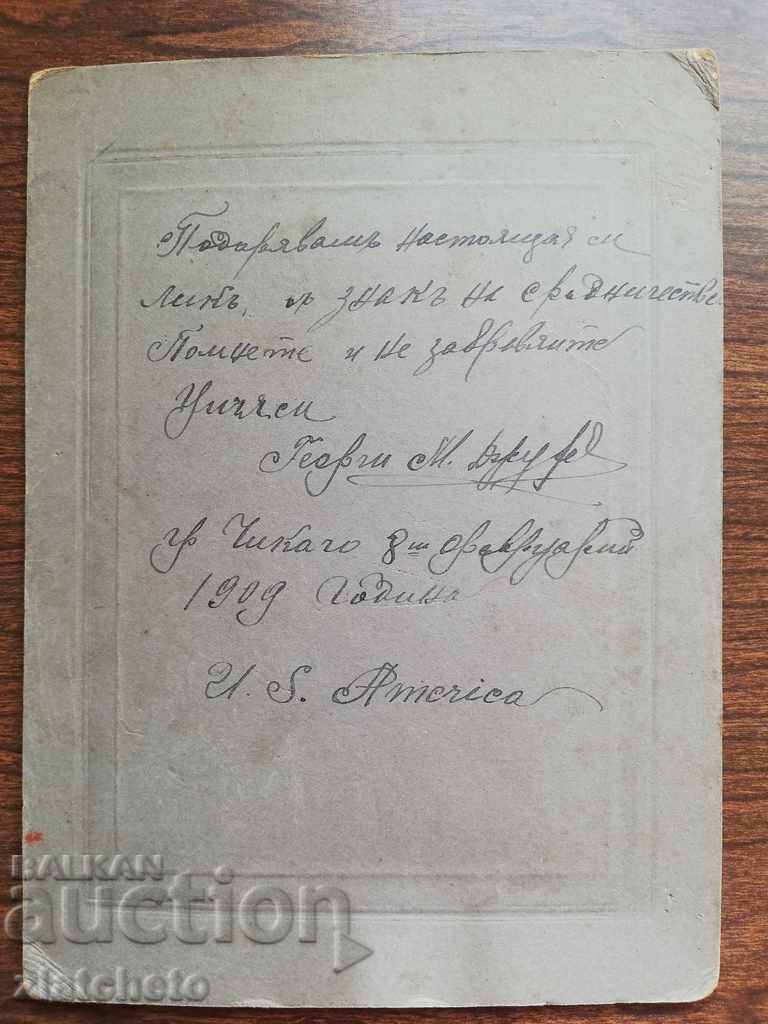 Подарявамъ настоящия си
ликъ, въ знакъ на сродничество
Помнете и не забравяйте
Георги М.
гр Чикаго 8ий февруарий
1909 Година
U. S. America
BALKAN
auction
zlatcheto